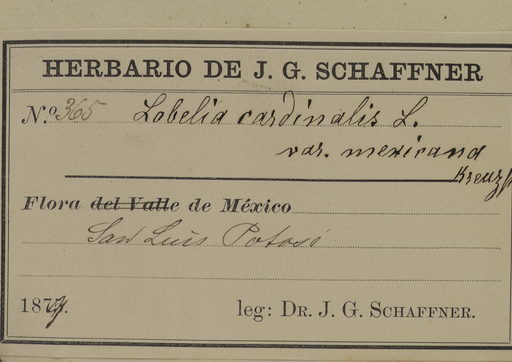 HERBARIO DE J. G. SCHAFFNER
N.º 365 Lobelia cardinalis L.
var. mexicana
Flora del Valle de México
San Luis Potosí
187
leg: DR. J. G. SCHAFFNER.